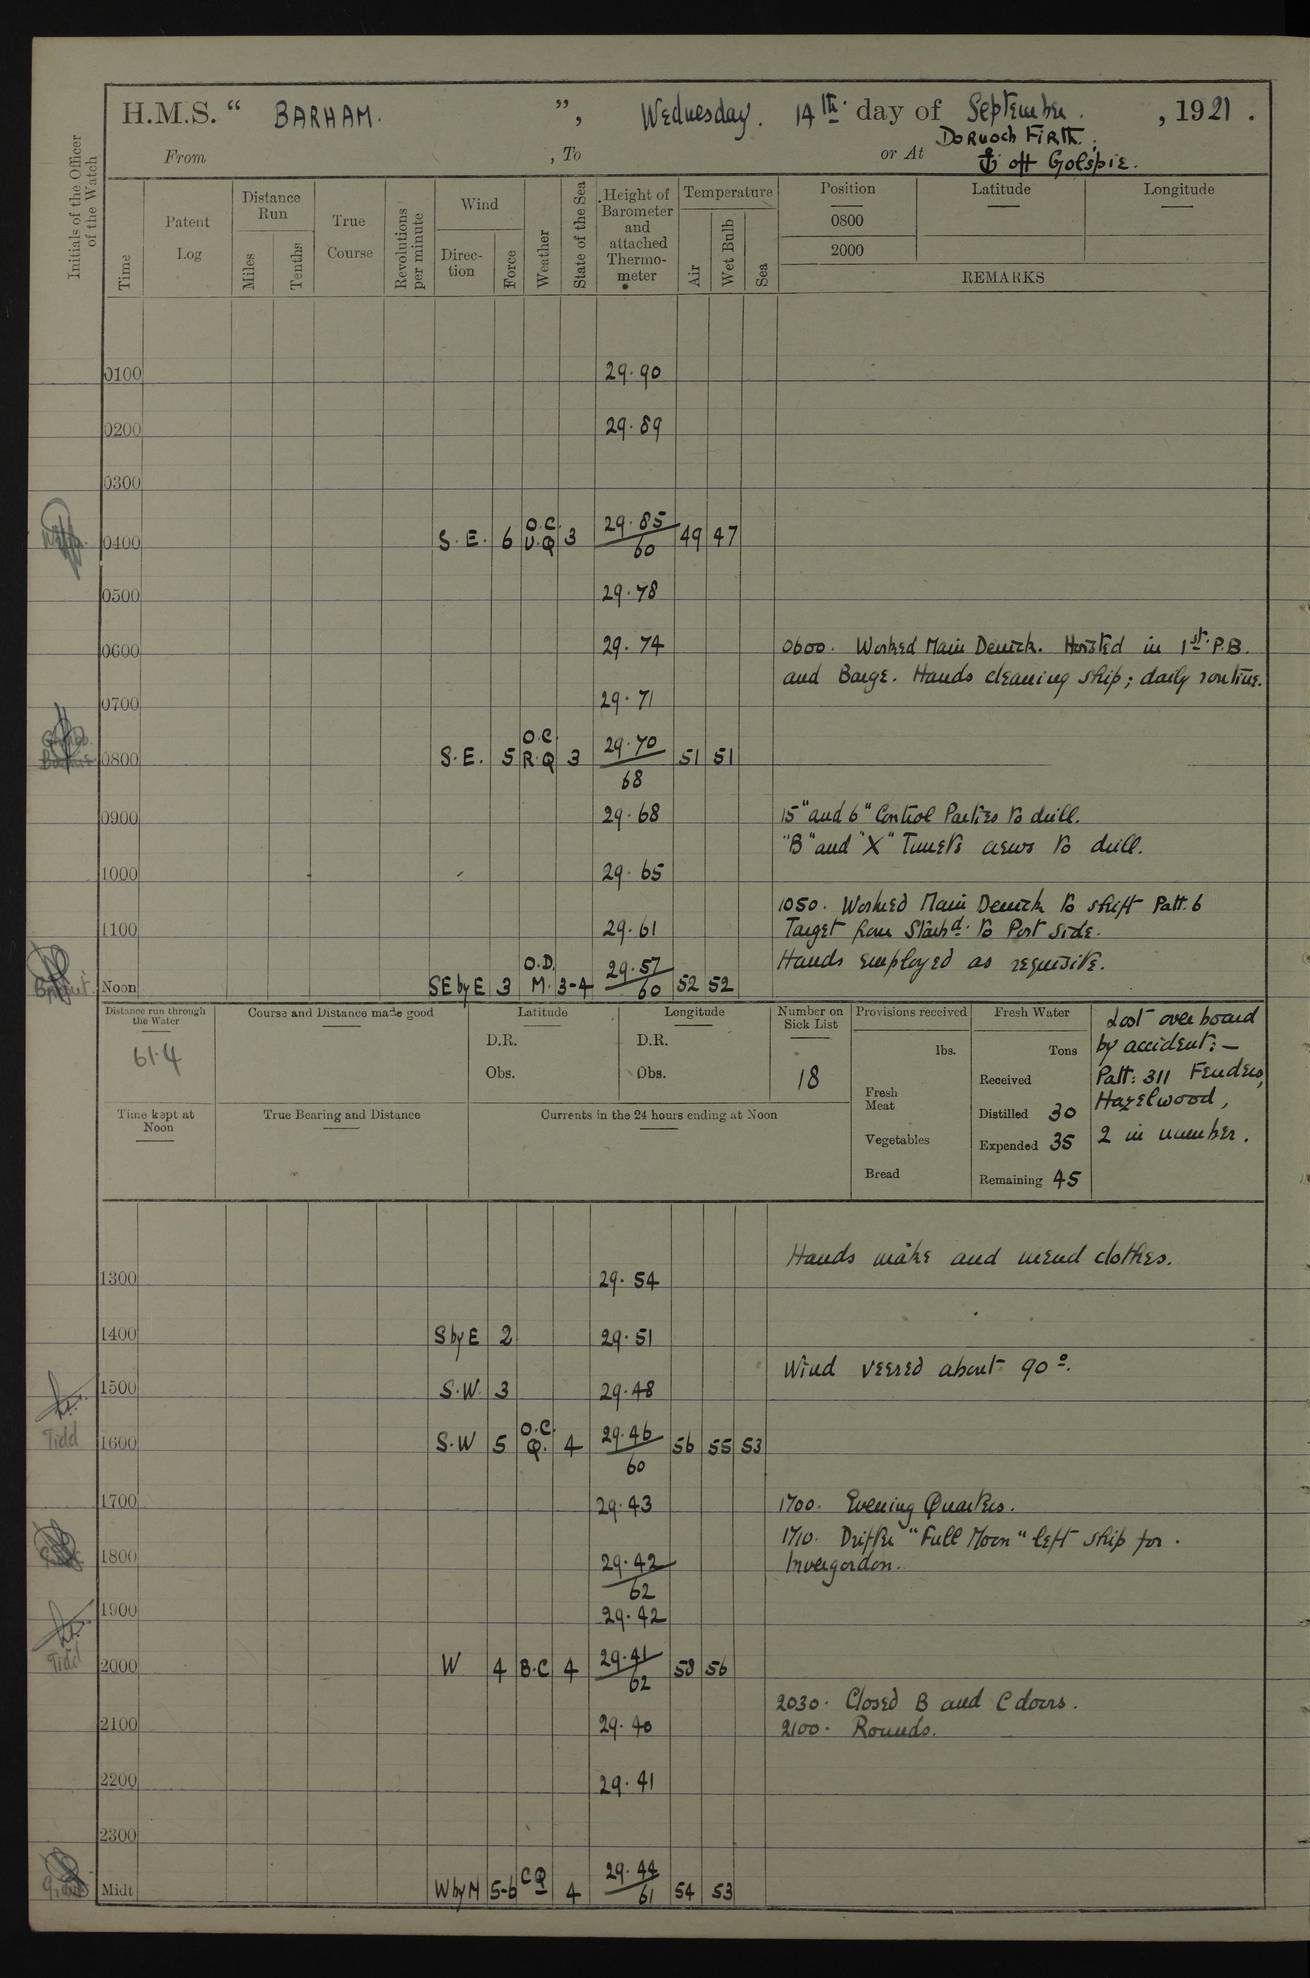 H.M.S. " BARHAM. ", Wednesday. 14th. day of September. , 1921.
From , To or At Dornoch Firth.;
⚓ off Golspie.
Initials of the Officer of the Watch
Time
Patent Log
Distance Run
Miles
Tenths
True Course
Revolutions per minute
Wind
Direction
Force
Weather
State of the Sea
Height of Barometer and attached Thermometer
Temperature
Air
Wet Bulb
Sea
Position Latitude Longitude
0800
2000
REMARKS
0100 29.90
0200 29.89
0300
0400 S.E. 6 O.C. U.Q 3 29.85/60 49 47
0500 29.78
0600 29.74 0600. Worked Main Derrick. Hoisted in 1st. P.B.
and Barge. Hands cleaning ship; daily routine.
0700 29.71
0800 S.E. 5 O.C. R.Q 3 29.70/68 51 51
0900 29.68 15" and 6" Control Parties to drill.
"B" and "X" Turrets crews to drill.
1000 29.65
1050. Worked Main Derrick to shift Patt. 6
1100 29.61 Target from Starbd. to Port side.
Hands employed as requisite.
Noon SE by E 3 O.D. M. 3-4 29.57/60 52 52
Distance run through the Water
61.4
Course and Distance made good
Latitude
D.R.
Obs.
Longitude
D.R.
Obs.
Number on Sick List
18
Provisions received
lbs.
Fresh Meat
Vegetables
Bread
Fresh Water
Tons
Received
Distilled 30
Expended 35
Remaining 45
Lost overboard
by accident:—
Patt: 311 Fenders,
Hazelwood,
2 in number.
Time kept at Noon
True Bearing and Distance
Currents in the 24 hours ending at Noon
Hands make and mend clothes.
1300 29.54
1400 S by E 2 29.51
Wind veered about 90°.
1500 S.W. 3 29.48
Tidd 1600 S.W 5 O.C. Q. 4 29.46/60 56 55 53
1700 29.43 1700. Evening Quarters.
1710. Drifter "Full Moon" left ship for
Invergordon.
1800 29.42/62
1900 29.42
Tidd 2000 W 4 B.C 4 29.41/62 58 56
2030. Closed B and C doors.
2100 29.40 2100. Rounds.
2200 29.41
2300
Midt W by N 5-6 C Q 4 29.44/61 54 53